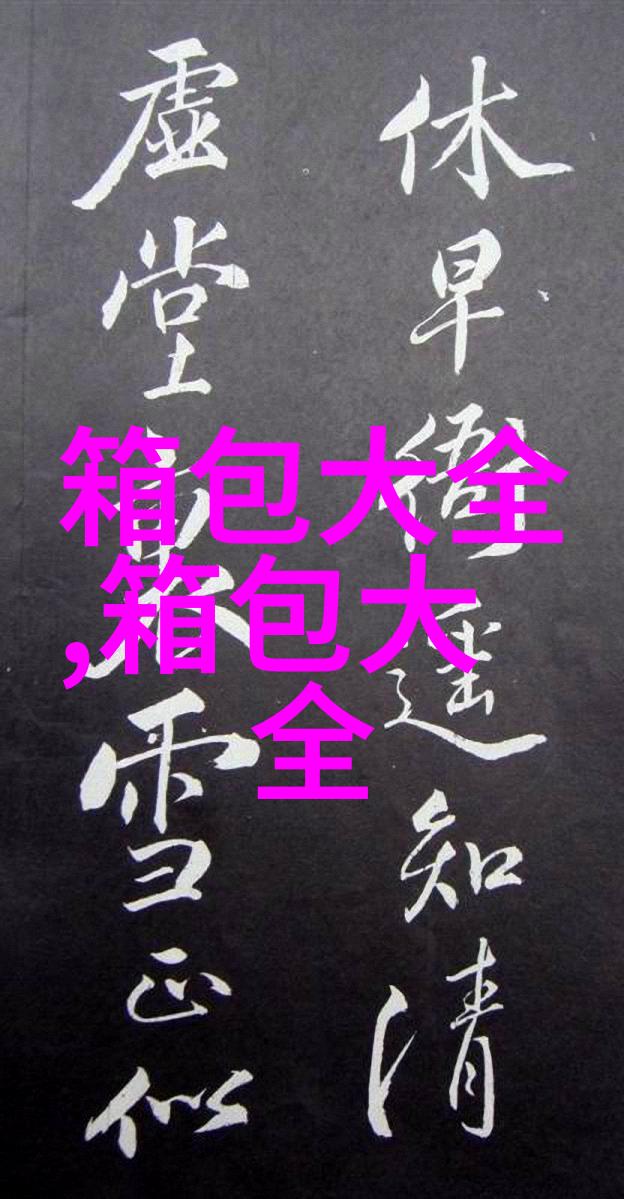 休早衙遥知清
虚堂雪正似
箱包大全
,箱包大
全